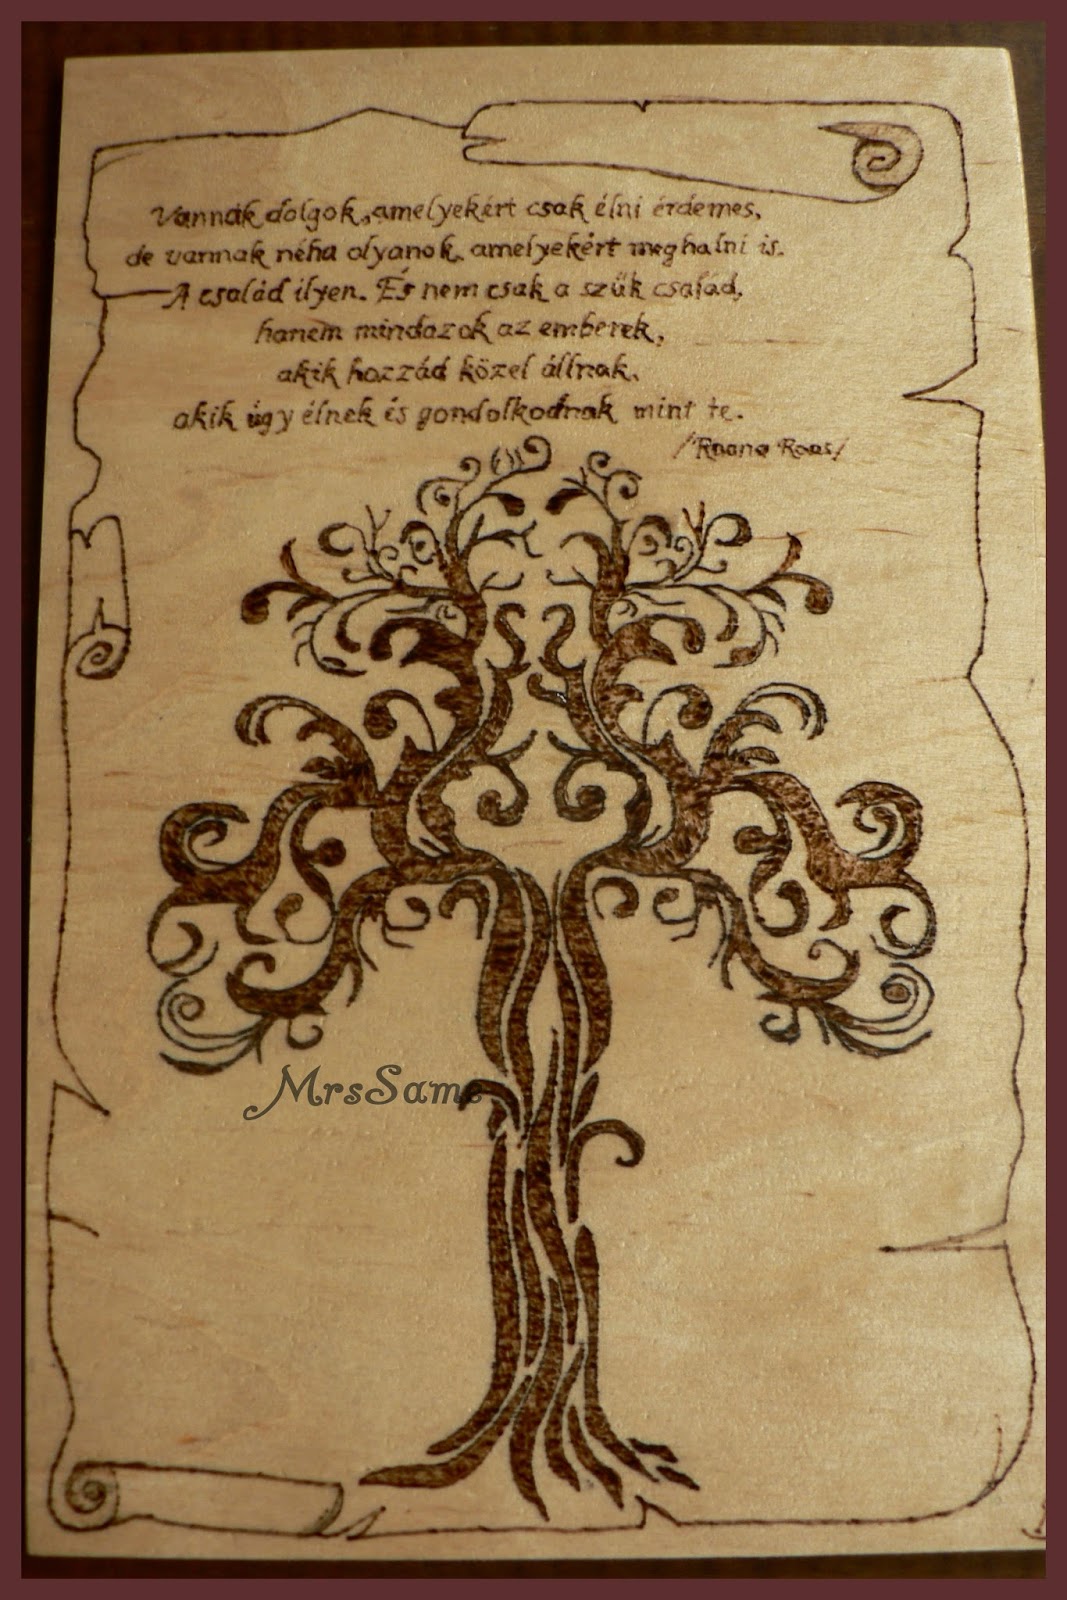 Vannak dolgok, amelyekért csak élni érdemes,
de vannak néha olyanok, amelyekért meghalni is.
A család ilyen. És nem csak a szűk család,
hanem mindazok az emberek,
akik hozzád közel állnak,
akik úgy élnek és gondolkodnak mint te.
/Roana Roas/
MrsSame